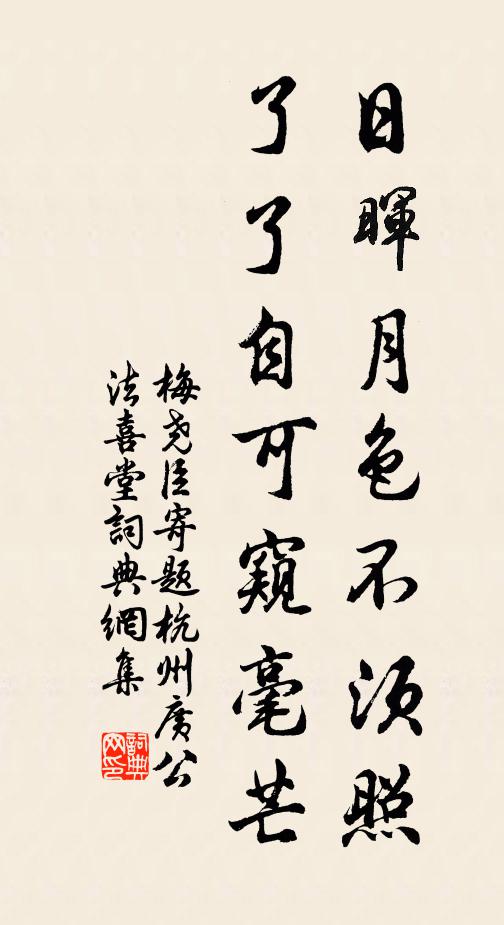 日暉月色不須照
了了自可窺毫芒
梅尧臣寄題杭州廣公
法喜堂詞典網集
詞典網印